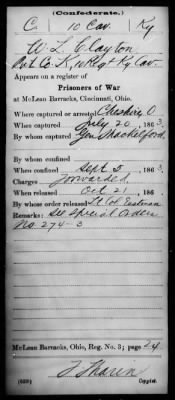 (Confederate.)
C. 10 Cav. Ky
W. L. Clayton
Pvt Co. K, 10 Regt Ky Cav.
Appears on a register of
Prisoners of War
at McLean Barracks, Cincinnati, Ohio.
Where captured or arrested Cheshire O
When captured July 20, 1863
By whom captured Gen Shackelford
By whom confined
When confined Sept 5, 1863.
Charges forwarded
When released Oct 21, 186
By whose order released Lt Col Eastman
Remarks: See Special Orders
No. 274-3
McLean Barracks, Ohio, Reg. No. 3; page 24
Copyist.